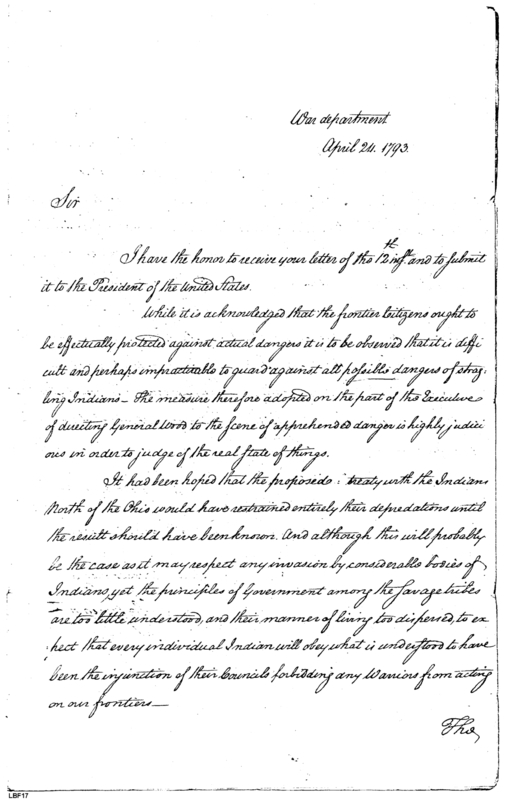 War department
April 24. 1793.
Sir
I have the honor to receive your letter of the 12th inst. and to submit
it to the President of the United States.
While it is acknowledged that the frontier Citizens ought to
be effectually protected against actual dangers it is to be observed that it is diffi
cult and perhaps impracticable to guard against all possible dangers of strag
ling Indians— The measure therefore adopted on the part of the Executive
of directing General Wood to the scene of apprehended danger is highly judici
ous in order to judge of the real state of things.
It had been hoped that the proposed treaty with the Indians
North of the Ohio would have restrained entirely their depredations until
the result should have been known. And although this will probably
be the case as it may respect any invasion by considerable bodies of
Indians, yet the principles of Government among the Savage tribes
are too little understood, and their manner of living too dispersed, to ex
pect that every individual Indian will obey what is understood to have
been the injunction of their Councils forbidding any Warriors from acting
on our frontiers—
The
LBF17